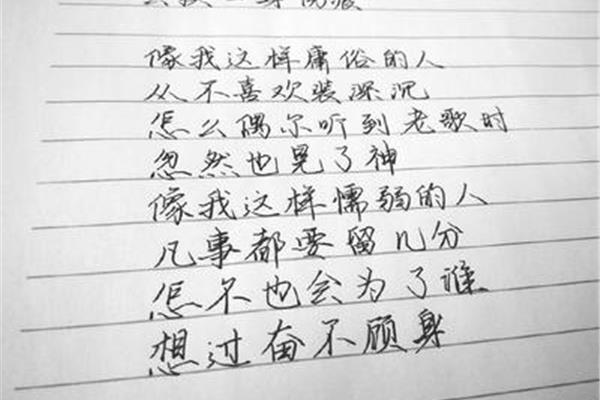 像我这样庸俗的人
从不喜欢装深沉
怎么偶尔听到老歌时
忽然也晃了神
像我这样懦弱的人
凡事都要留几分
怎不也会为了谁
想过奋不顾身